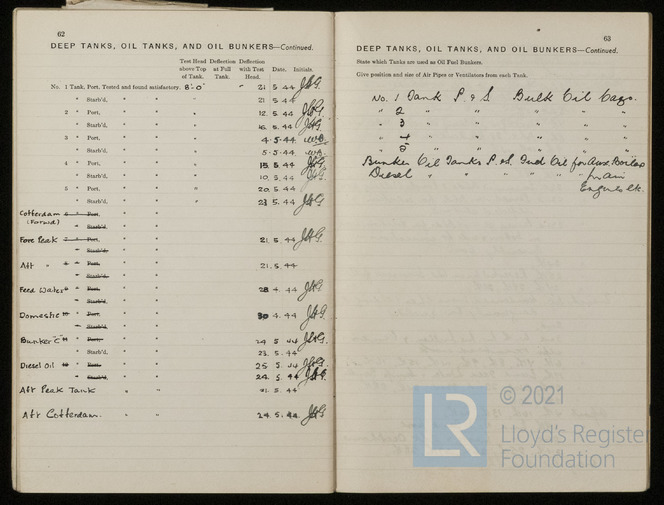 62
DEEP TANKS, OIL TANKS, AND OIL BUNKERS—Continued.
Test Head above Top of Tank. Deflection at Full Tank. Deflection with Test Head. Date. Initials.
No. 1 Tank, Port. Tested and found satisfactory. 8'-0" " 21 5 44 JHG.
" Starb'd. " " " 21 5 44
" 2 " Port. " " " 12. 5. 44 JHG.
" Starb'd. " " 16. 5. 44 JHG.
" 3 " Port. " " 4. 5. 44
" Starb'd. " " 5. 5. 44
" 4 " Port. " " " 15 5. 44 JHG.
" Starb'd. " " 10. 5. 44 JHG.
" 5 " Port. " " " 20. 5. 44
" Starb'd. " " " 23 5. 44 JHG.
Cofferdam 6 " Port. " "
(Forward) " Starb'd. " "
Fore Peak 7 " Port. " " 21. 5. 44 JHG.
" Starb'd. " "
Aft " 8 " Port. " " 21. 5. 44
" Starb'd. " "
Feed Water 9 " Port. " " 28 4. 44 JHG.
" Starb'd. " "
Domestic 10 " Port. " " 30 4. 44 JHG.
" Starb'd. " "
Bunker C 11 " Port. " " 24 5 44 JHG.
" Starb'd. " " 23. 5. 44
Diesel Oil 12 " Port. " " 25 5. 44 JHG.
" Starb'd. " " 24. 5. 44 JHG.
Aft Peak Tank " " 21. 5. 44
Aft Cofferdam. " " 24. 5. 44 JHG
63
DEEP TANKS, OIL TANKS, AND OIL BUNKERS—Continued.
State which Tanks are used as Oil Fuel Bunkers.
Give position and size of Air Pipes or Ventilators from each Tank.
No. 1 Tank P. & S. Bulk Oil Cargo.
" 2 " " " "
" 3 " " " "
" 4 " " " "
" 5 " " " "
Bunker Oil Tanks P & S. Fuel Oil for Aux. Boilers
Diesel " " " " " for Main
Engines etc.
LR
© 2021
Lloyd's Register
Foundation